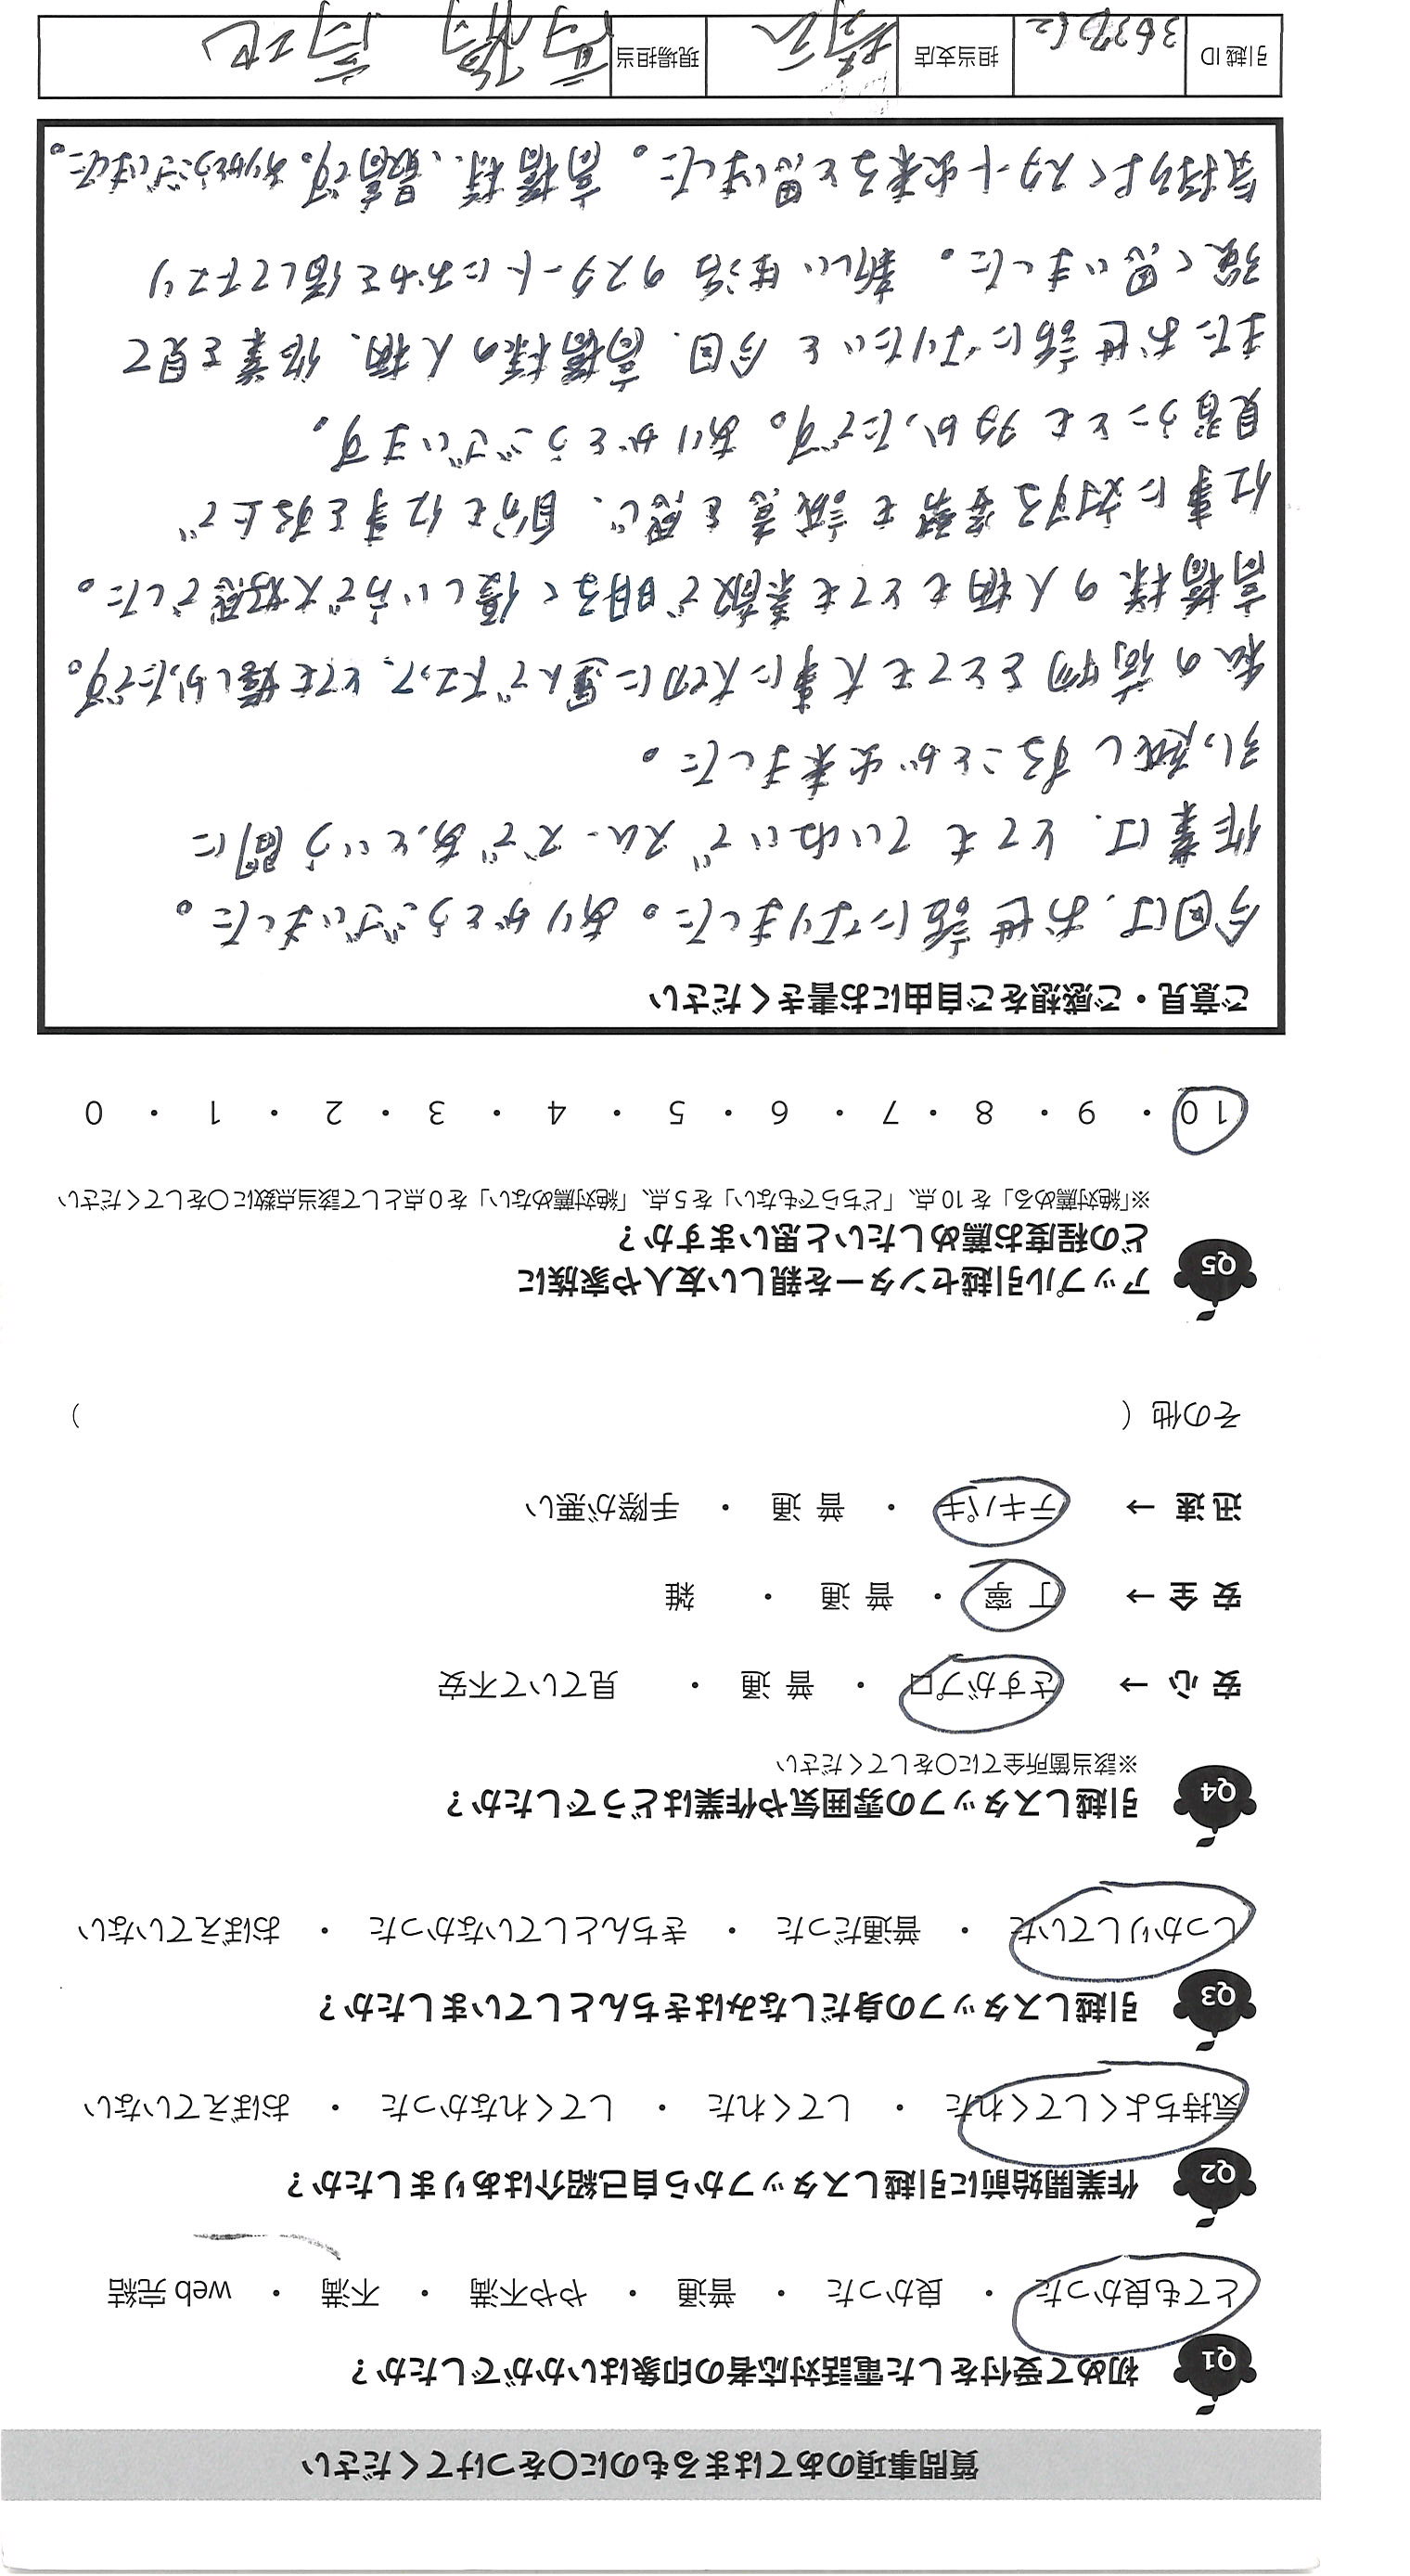 質問事項のあてはまるものに〇をつけてください
Q1 初めて受付をした電話対応者の印象はいかがでしたか？
とても良かった ・ 良かった ・ 普通 ・ やや不満 ・ 不満 ・ web 完結
Q2 作業開始前に引越しスタッフから自己紹介はありましたか？
気持ちよくしてくれた ・ してくれた ・ してくれなかった ・ おぼえていない
Q3 引越しスタッフの身だしなみはきちんとしていましたか？
しっかりしていた ・ 普通だった ・ きちんとしていなかった ・ おぼえていない
Q4 引越しスタッフの雰囲気や作業はどうでしたか？
※該当箇所全てに〇をしてください
安 心 → さすがプロ ・ 普 通 ・ 見ていて不安
安 全 → 丁 寧 ・ 普 通 ・ 雑
迅 速 → テキパキ ・ 普 通 ・ 手際が悪い
その他 ( )
Q5 アップル引越センターを親しい友人や家族に
どの程度お薦めしたいと思いますか？
※「絶対薦める」を 10 点、「どちらでもない」を 5 点、「絶対薦めない」を 0 点として該当点数に〇をしてください
10 ・ 9 ・ 8 ・ 7 ・ 6 ・ 5 ・ 4 ・ 3 ・ 2 ・ 1 ・ 0
ご意見・ご感想をご自由にお書きください
今回は、お世話になりました。ありがとうございました。
作業は、とても ていねいで スムーズで あっという間に
引っ越しすることが出来ました。
私の荷物をとても大事に大切に運んで下エって、とても嬉しかったです。
高橋様の人柄もとても素敵で明るく優しい方で大好感でした。
仕事に対する姿勢も誠意を感じ、自分も仕事をする上で
見習うことも多かったです。ありがとうございます。
またお世話になりたいと 今回、高橋様の人柄、作業を見て
強く思いました。新しい生活のスタートにお力を借して下エり
気持ちよくスタート出来ると思いました。高橋様、最高です。ありがとうございました。
引越 ID 担当支店 現場担当 高橋